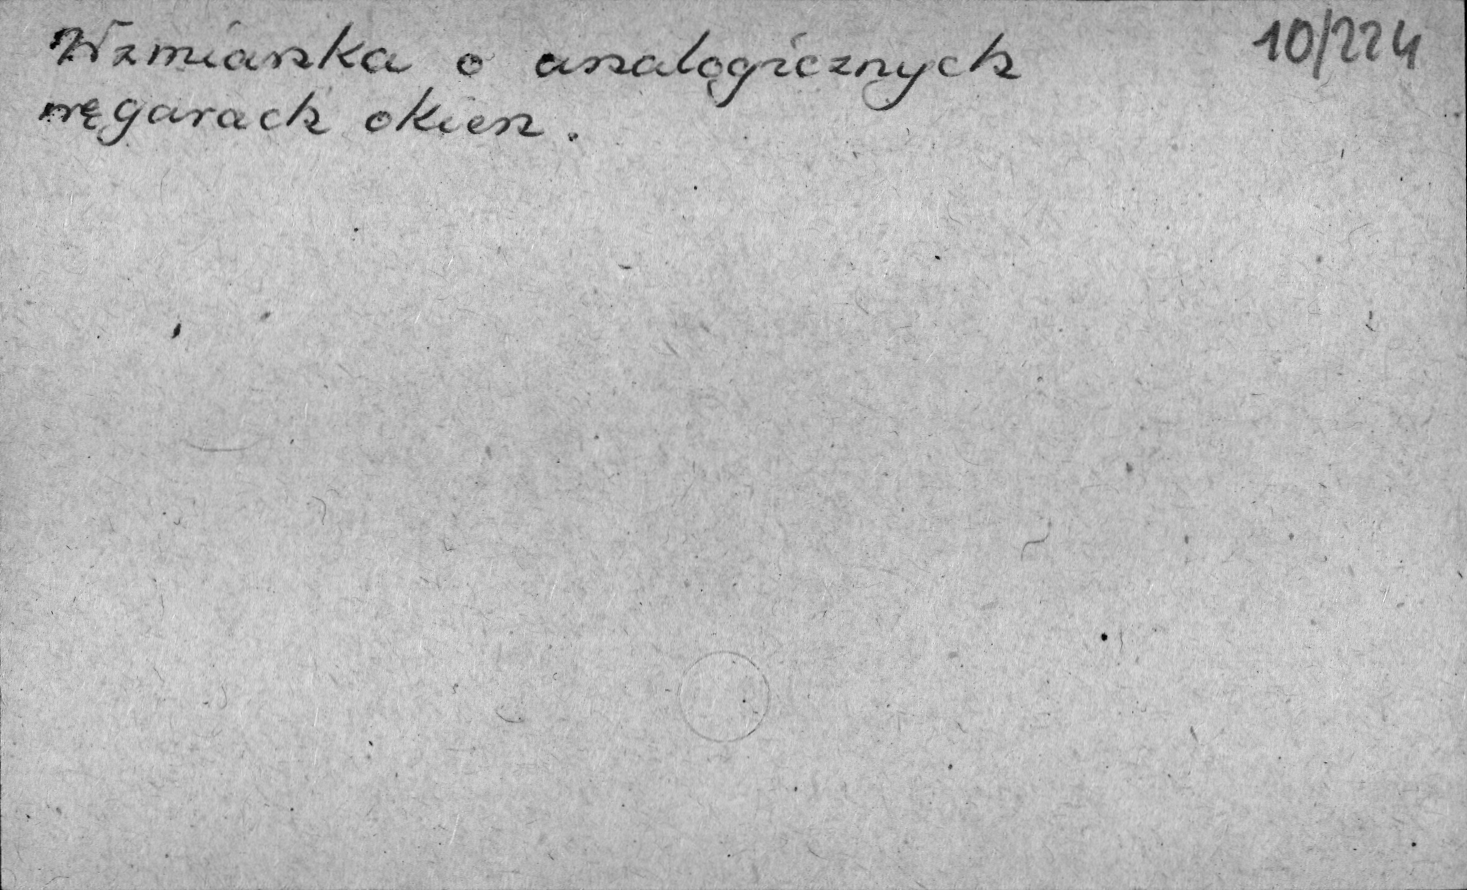 10/224
Wzmianka o analogicznych
węgarach okien.